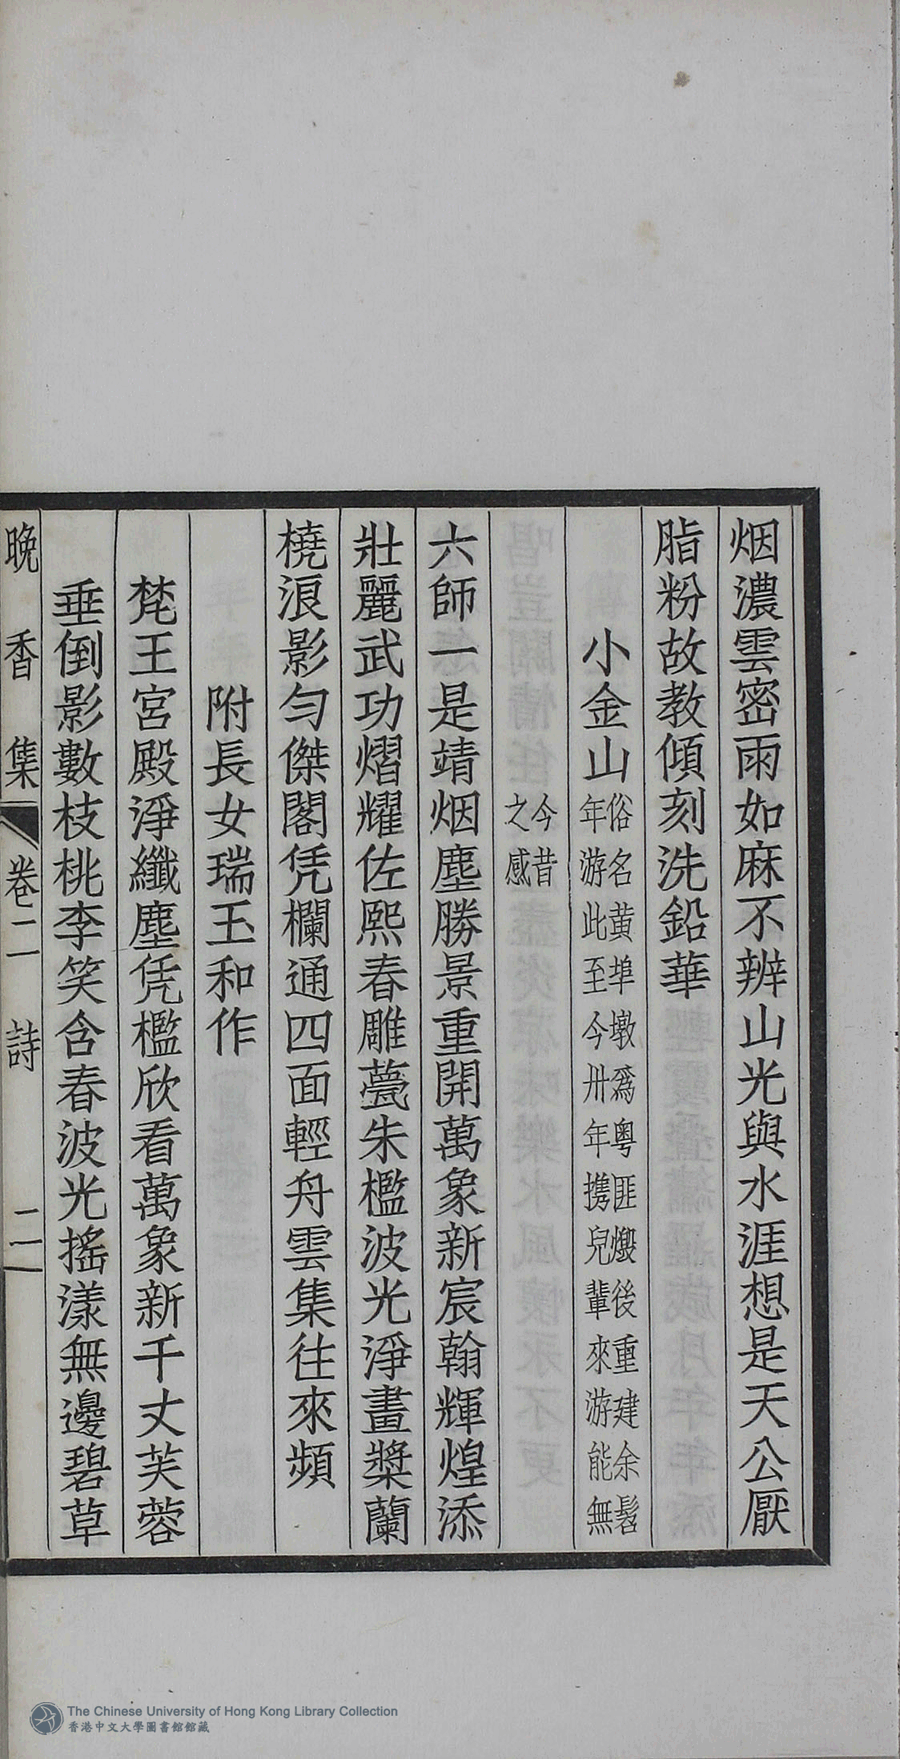 烟濃雲密雨如麻不辨山光與水涯想是天公厭
脂粉故教傾刻洗鉛華
小金山俗名黄埠墩爲粤匪燬後重建余髫
年游此至今卅年攜兒輩來游能無
今昔
之感
六師一是靖烟塵勝景重開萬象新宸翰輝煌添
壯麗武功熠耀佐熙春雕甍朱檻波光淨畫槳蘭
橈浪影勻傑閣凭欄通四面輕舟雲集往來頻
附長女瑞玉和作
梵王宮殿淨纖塵凭檻欣看萬象新千丈芙蓉
垂倒影數枝桃李笑含春波光搖漾無邊碧草
晚香集 卷二 詩 二
The Chinese University of Hong Kong Library Collection
香港中文大學圖書館館藏